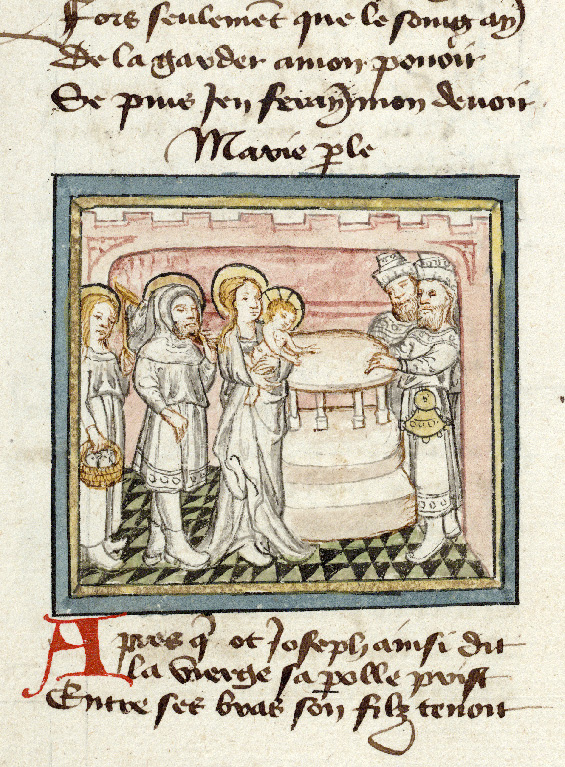 Fors seulement que le soing ay
De la garder a mon pouoir
Se puis Jen feray mon deuoir
Marie ple
Apres q̄ ot Joseph ainsi dit
la vierge sa polle prist
Entre ses bras son filz tenoit